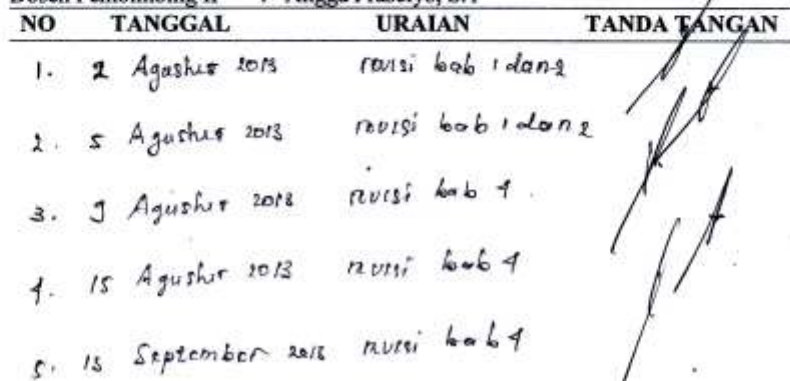 NO TANGGAL URAIAN TANDA TANGAN
1. 2 Agustus 2013 revisi bab 1 dan 2
2. 5 Agustus 2013 revisi bab 1 dan 2
3. 9 Agustus 2013 revisi bab 4
4. 15 Agustus 2013 revisi bab 4
5. 13 September 2013 revisi bab 4